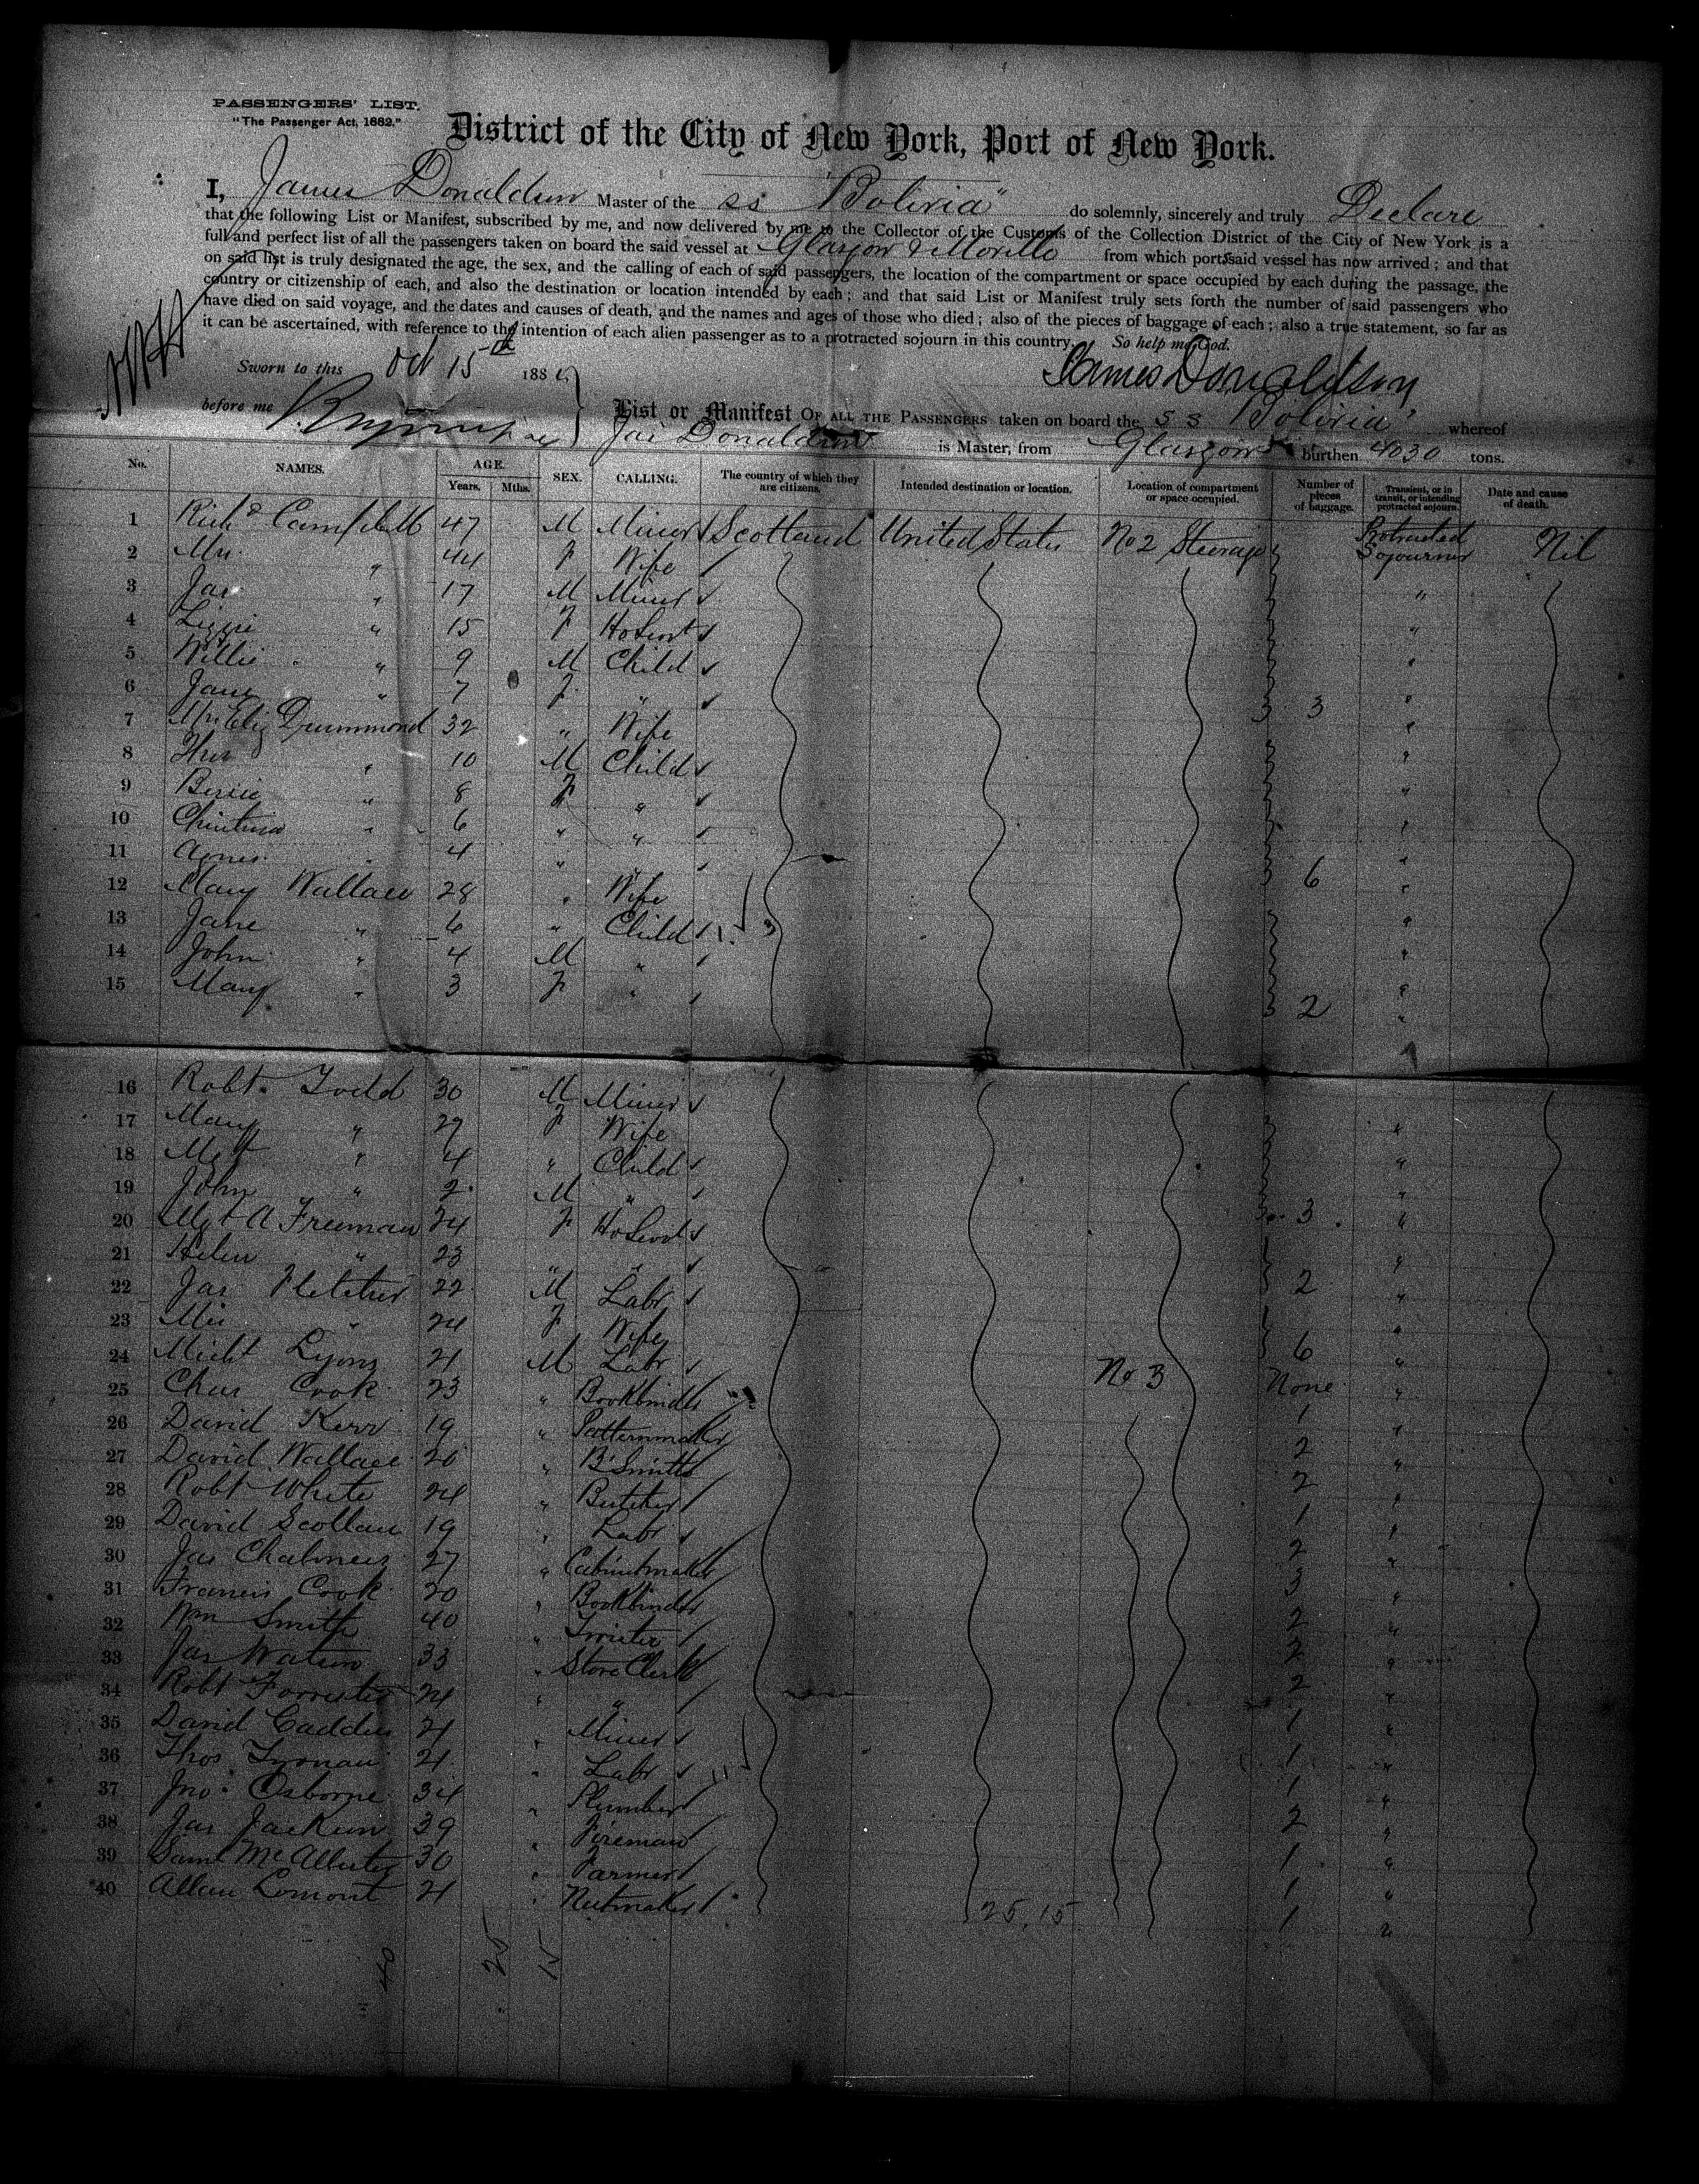 PASSENGERS' LIST.
"The Passenger Act, 1882."
District of the City of New York, Port of New York.
I, James Donaldson Master of the ss "Bolivia" do solemnly, sincerely and truly Declare
that the following List or Manifest, subscribed by me, and now delivered by me to the Collector of the Customs of the Collection District of the City of New York is a
full and perfect list of all the passengers taken on board the said vessel at Glasgow & Moville from which port said vessel has now arrived; and that
on said list is truly designated the age, the sex, and the calling of each of said passengers, the location of the compartment or space occupied by each during the passage, the
country or citizenship of each, and also the destination or location intended by each; and that said List or Manifest truly sets forth the number of said passengers who
have died on said voyage, and the dates and causes of death, and the names and ages of those who died; also of the pieces of baggage of each; also a true statement, so far as
it can be ascertained, with reference to the intention of each alien passenger as to a protracted sojourn in this country. So help me God.
Sworn to this Oct 15th 188
James Donaldson
before me
List or Manifest OF ALL THE PASSENGERS taken on board the s s Bolivia whereof
Jas Donaldson is Master, from Glasgow burthen 4030 tons.
No. NAMES. AGE. Years. Mths. SEX. CALLING. The country of which they are citizens. Intended destination or location. Location of compartment or space occupied. Number of pieces of baggage. Transient, or in transit, or intending protracted sojourn. Date and cause of death.
1 Richd Campbell 47 M Miner Scotland United States No 2 Steerage Protracted Sojourner Nil
2 Mrs " 44 F Wife
3 Jas " 17 M Miner "
4 Lizzie " 15 F Ho Servt "
5 Willie " 9 M Child "
6 Jane " 7 F " 3 "
7 Mrs Eliz Drummond 32 " Wife "
8 Thos " 10 M Child "
9 Bessie " 8 F " "
10 Christina " 6 " " "
11 Agnes " 4 " " 6 "
12 Mary Wallace 28 " Wife "
13 Jane " 6 " Child "
14 John " 4 M " "
15 Mary " 3 F " 2 "
16 Robt Todd 30 M Miner
17 Mary " 29 F Wife "
18 Mgt " 4 " Child "
19 John " 2 M " "
20 Mgt A Freeman 24 F Ho Servt 3 "
21 Helen " 23 " " "
22 Jas Fletcher 22 M Labr 2 "
23 Mrs " 24 F Wife "
24 Michl Lyons 21 M Labr No 3 6 "
25 Chas Cook 23 " Bookbinder None "
26 David Kerr 19 " Patternmaker 1 "
27 David Wallace 20 " B'Smith 2 "
28 Robt White 24 " Butcher 2 "
29 David Scollan 19 " Labr 1 "
30 Jas Chalmers 27 " Cabinetmaker 2 "
31 Francis Cook 20 " Bookbinder 3 "
32 Wm Smith 40 " 2 "
33 Jas Watson 33 " Store Clerk 2 "
34 Robt Forrester 24 " " 2 "
35 David Caddies 21 " Miner 1 "
36 Thos 21 " Labr 1 "
37 Jno Osborne 34 " Plumber 1 "
38 Jas Jackson 39 " Fireman 2 "
39 Saml McAllister 30 " Farmer 1 "
40 Allan Lomont 21 " 1 "
25.15 1 "
40 25 15